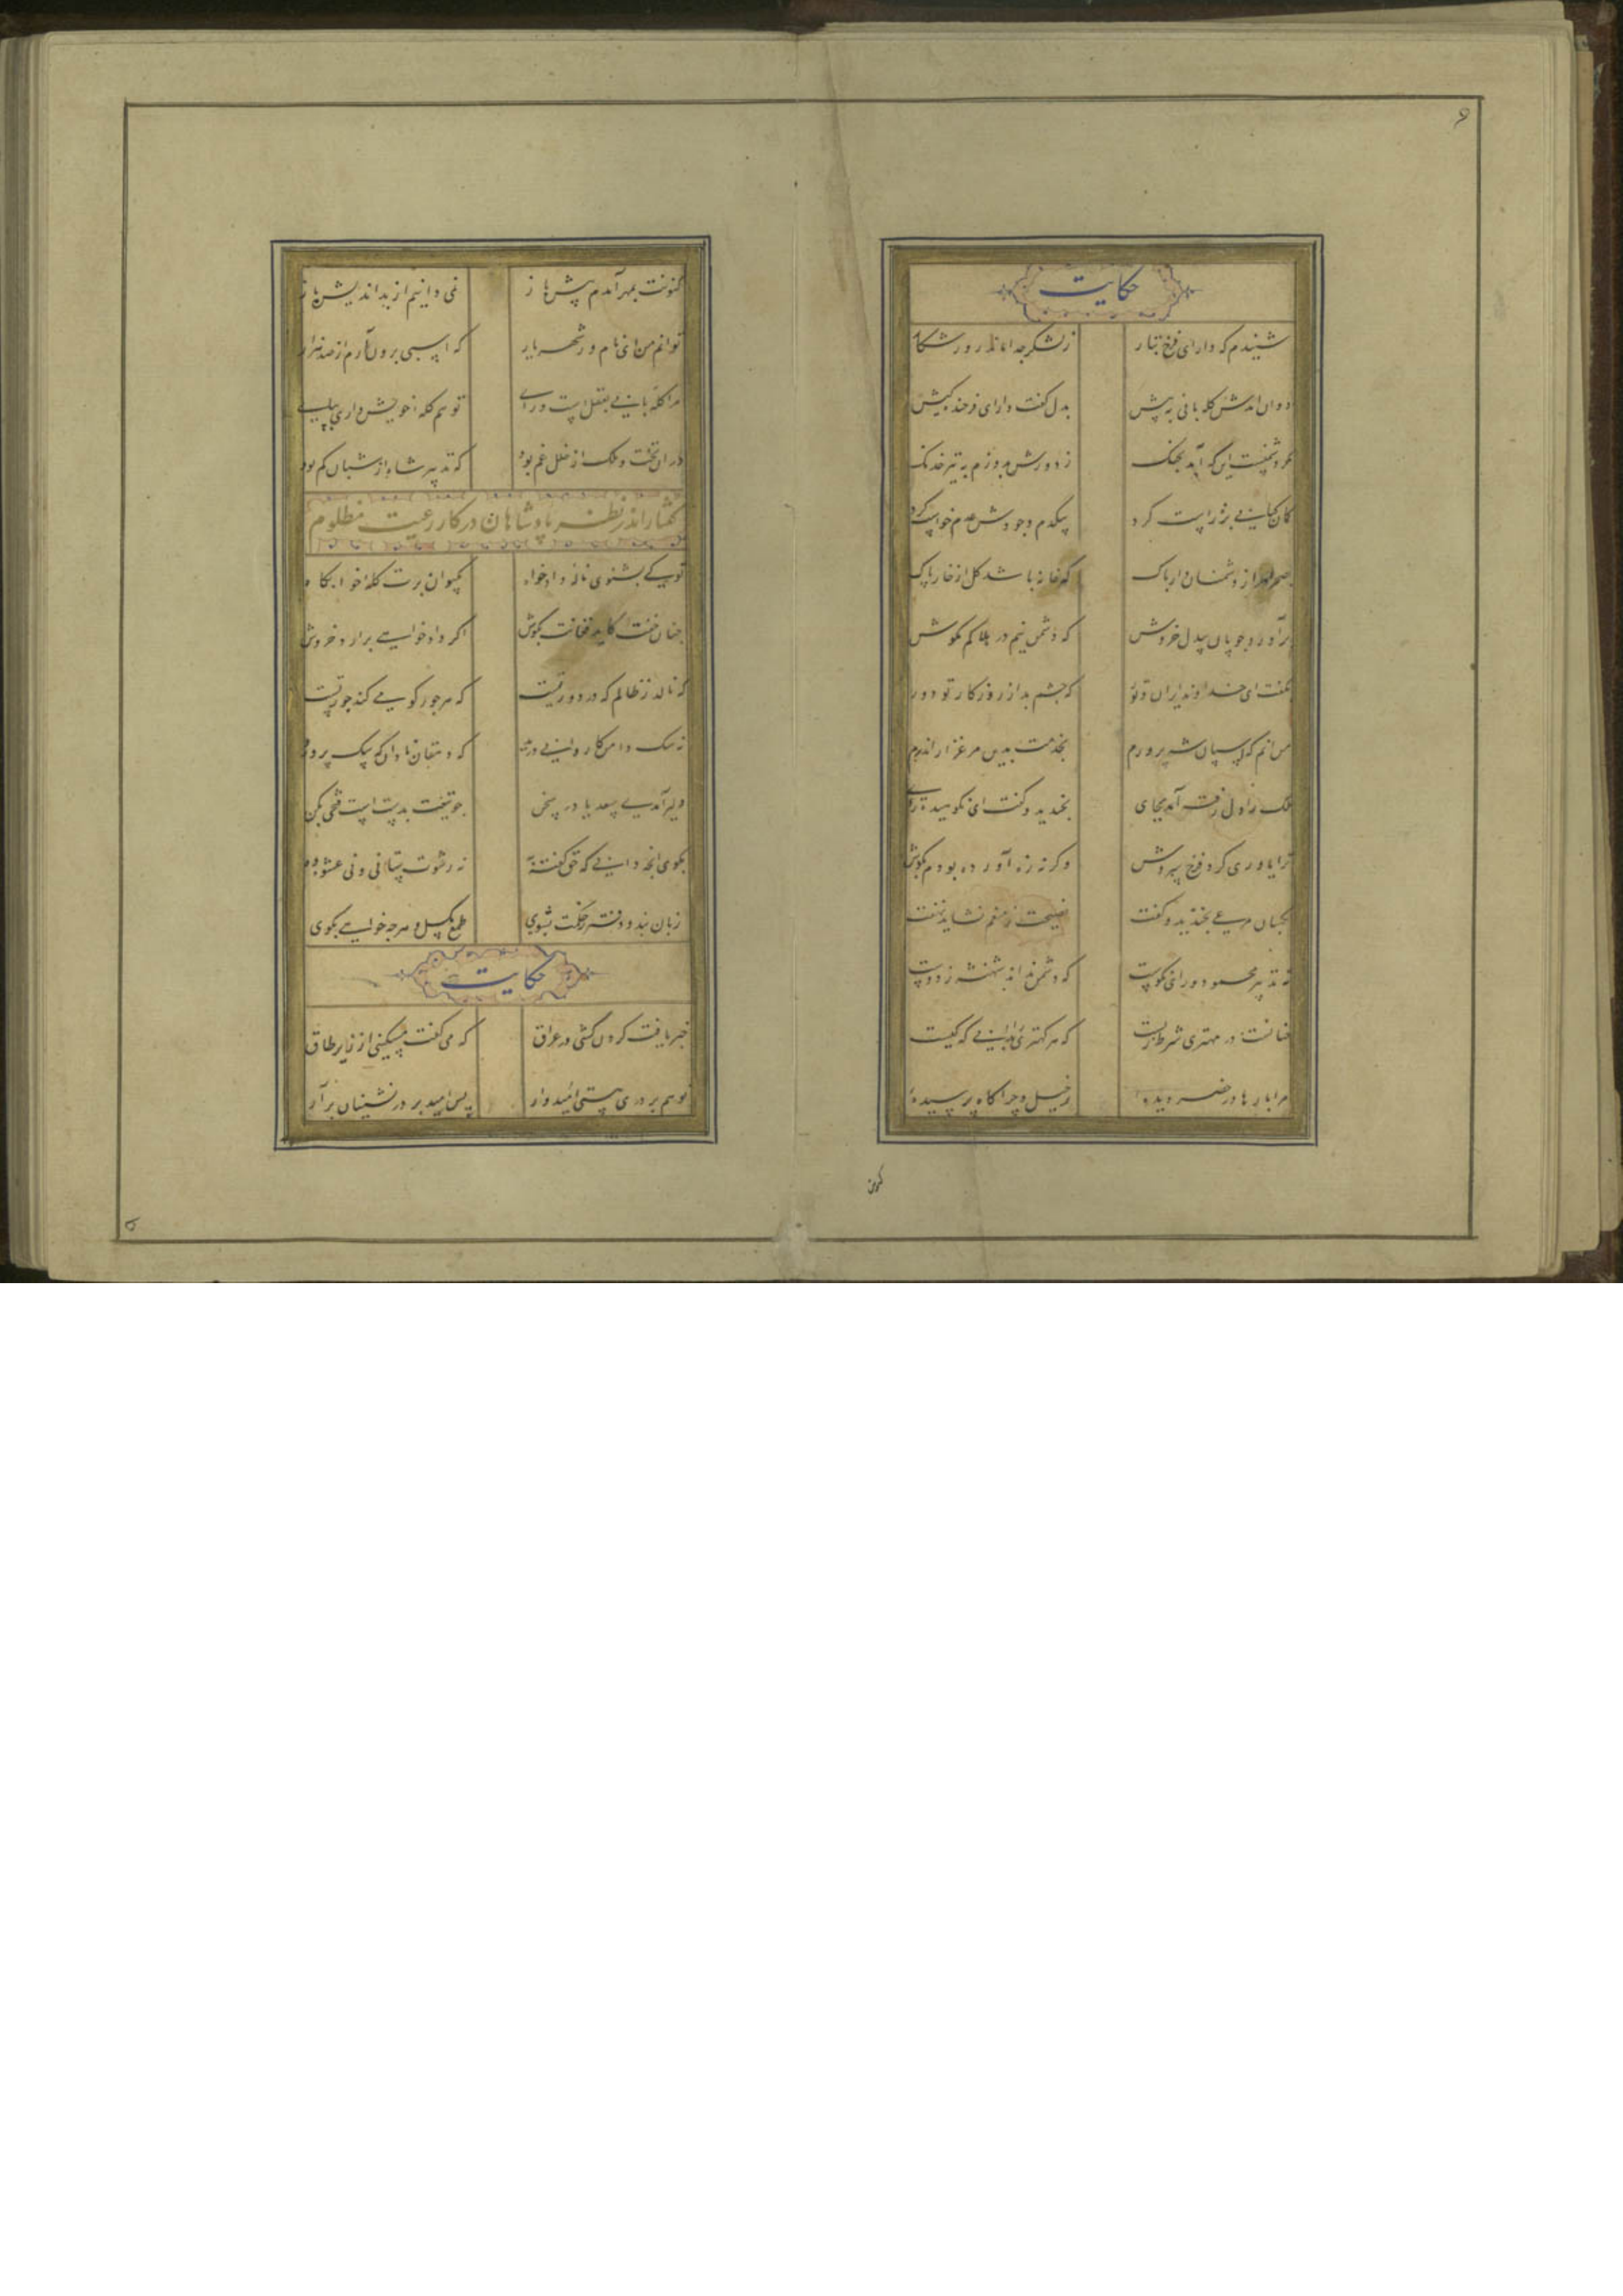 ۶
حکایت
شنیدم که دارای فرخ تبار    ز لشکر جدا ماند روز شکار
دوان آمدش گله بانی به پیش    بدل گفت دارای فرخنده کیش
مگر دشمنست این که آمد بجنگ    ز دورش بدوزم به تیر خدنگ
کمان کیانی بزه راست کرد    بیکدم وجودش عدم خواست کرد
بصحرا در از دشمنان دار باک    که در خانه باشد گل از خار پاک
برآورد چوپان بیدل خروش    که دشمن نیم در هلاکم مکوش
بگفت ای خداوند ایران و تور    که چشم بد از روزگار تو دور
من آنم که اسپان شه پرورم    بخدمت بدین مرغزار اندرم
ملک را دل رفته آمد بجای    بخندید و گفت ای نکوهیده رای
ترا یاوری کرد فرخ سروش    وگرنه زه آورده بودم بگوش
نگهبان مرعی بخندید و گفت    نصیحت ز منعم نشاید نهفت
نه تدبیر محمود و رای نکوست    که دشمن نداند شهنشه ز دوست
چنانست در مهتری شرط زیست    که هر کهتری را بدانی که کیست
مرا بارها در حضر دیده    ز خیل و چراگاه پرسیده
کنونت
کنونت بمهر آمدم پیش باز    نمی دانیم از بداندیش باز
توانم من ای نامور شهریار    که اسپی برون آرم از صد هزار
مرا گله بانی بعقلست و رای    تو هم گله خویش داری بپای
در آن تخت و ملک از خلل غم بود    که تدبیر شاه از شبان کم بود
گفتار اندر نظر پادشاهان در کار رعیت مظلوم
تو کی بشنوی ناله دادخواه    بکیوان برت کله خوابگاه
چنان خفت کاید فغانت بگوش    اگر دادخواهی برآرد خروش
که نالد ز ظالم که در دور تست    که هر جور کو می کند جور تست
نه سگ دامن کاروانی درید    که دهقان نادان که سگ پرورید
دلیر آمدی سعدیا در سخن    چو تیغت بدست است فتحی بکن
بگوی آنچه دانی که حق گفته به    نه رشوت ستانی و نی عشوه ده
زبان بند و دفتر ز حکمت بشوی    طمع بگسل و هرچه خواهی بگوی
حکایت
خبر یافت گردن کشی در عراق    که می گفت مسکینی از زیر طاق
تو هم بر دری هستی امیدوار    پس امید بر در نشینان برآر